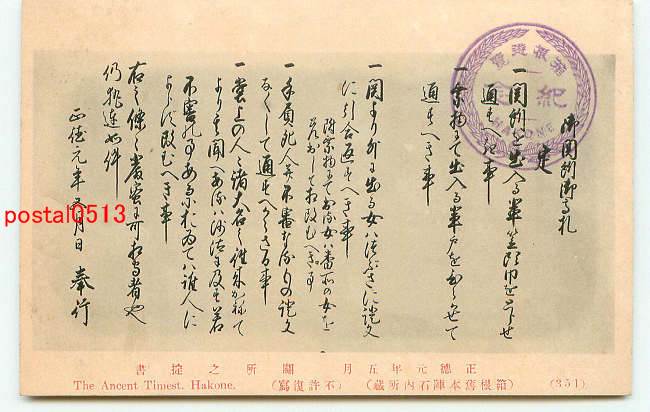 御関所御高札
定
一関所を出入る輩笠頭巾をとらせ
通すへき事
一乗物にて出入る輩戸をひらかせて
通すへき事
一関より外に出る女ハつぶさに証文
に引合通すへき事
附乗物にて出る女ハ番所の女を
差出して相改むへき事
一手負死人并不審なるもの証文
なくして通すへからさる事
一堂上の人々諸大名の往来かねて
より其聞あるハ沙汰に及す若
不審の事あるにおゐてハ誰人に
よらす改むへき事
右之條々厳密可相守者也
仍執達如件
正徳元年五月日 奉行
箱根遊覽
紀念
HAKONE
postal0513
正德元年五月 關所之掟書
The Ancent Timest. Hakone. (不許復寫) (箱根舊本陣石内所藏) (351)